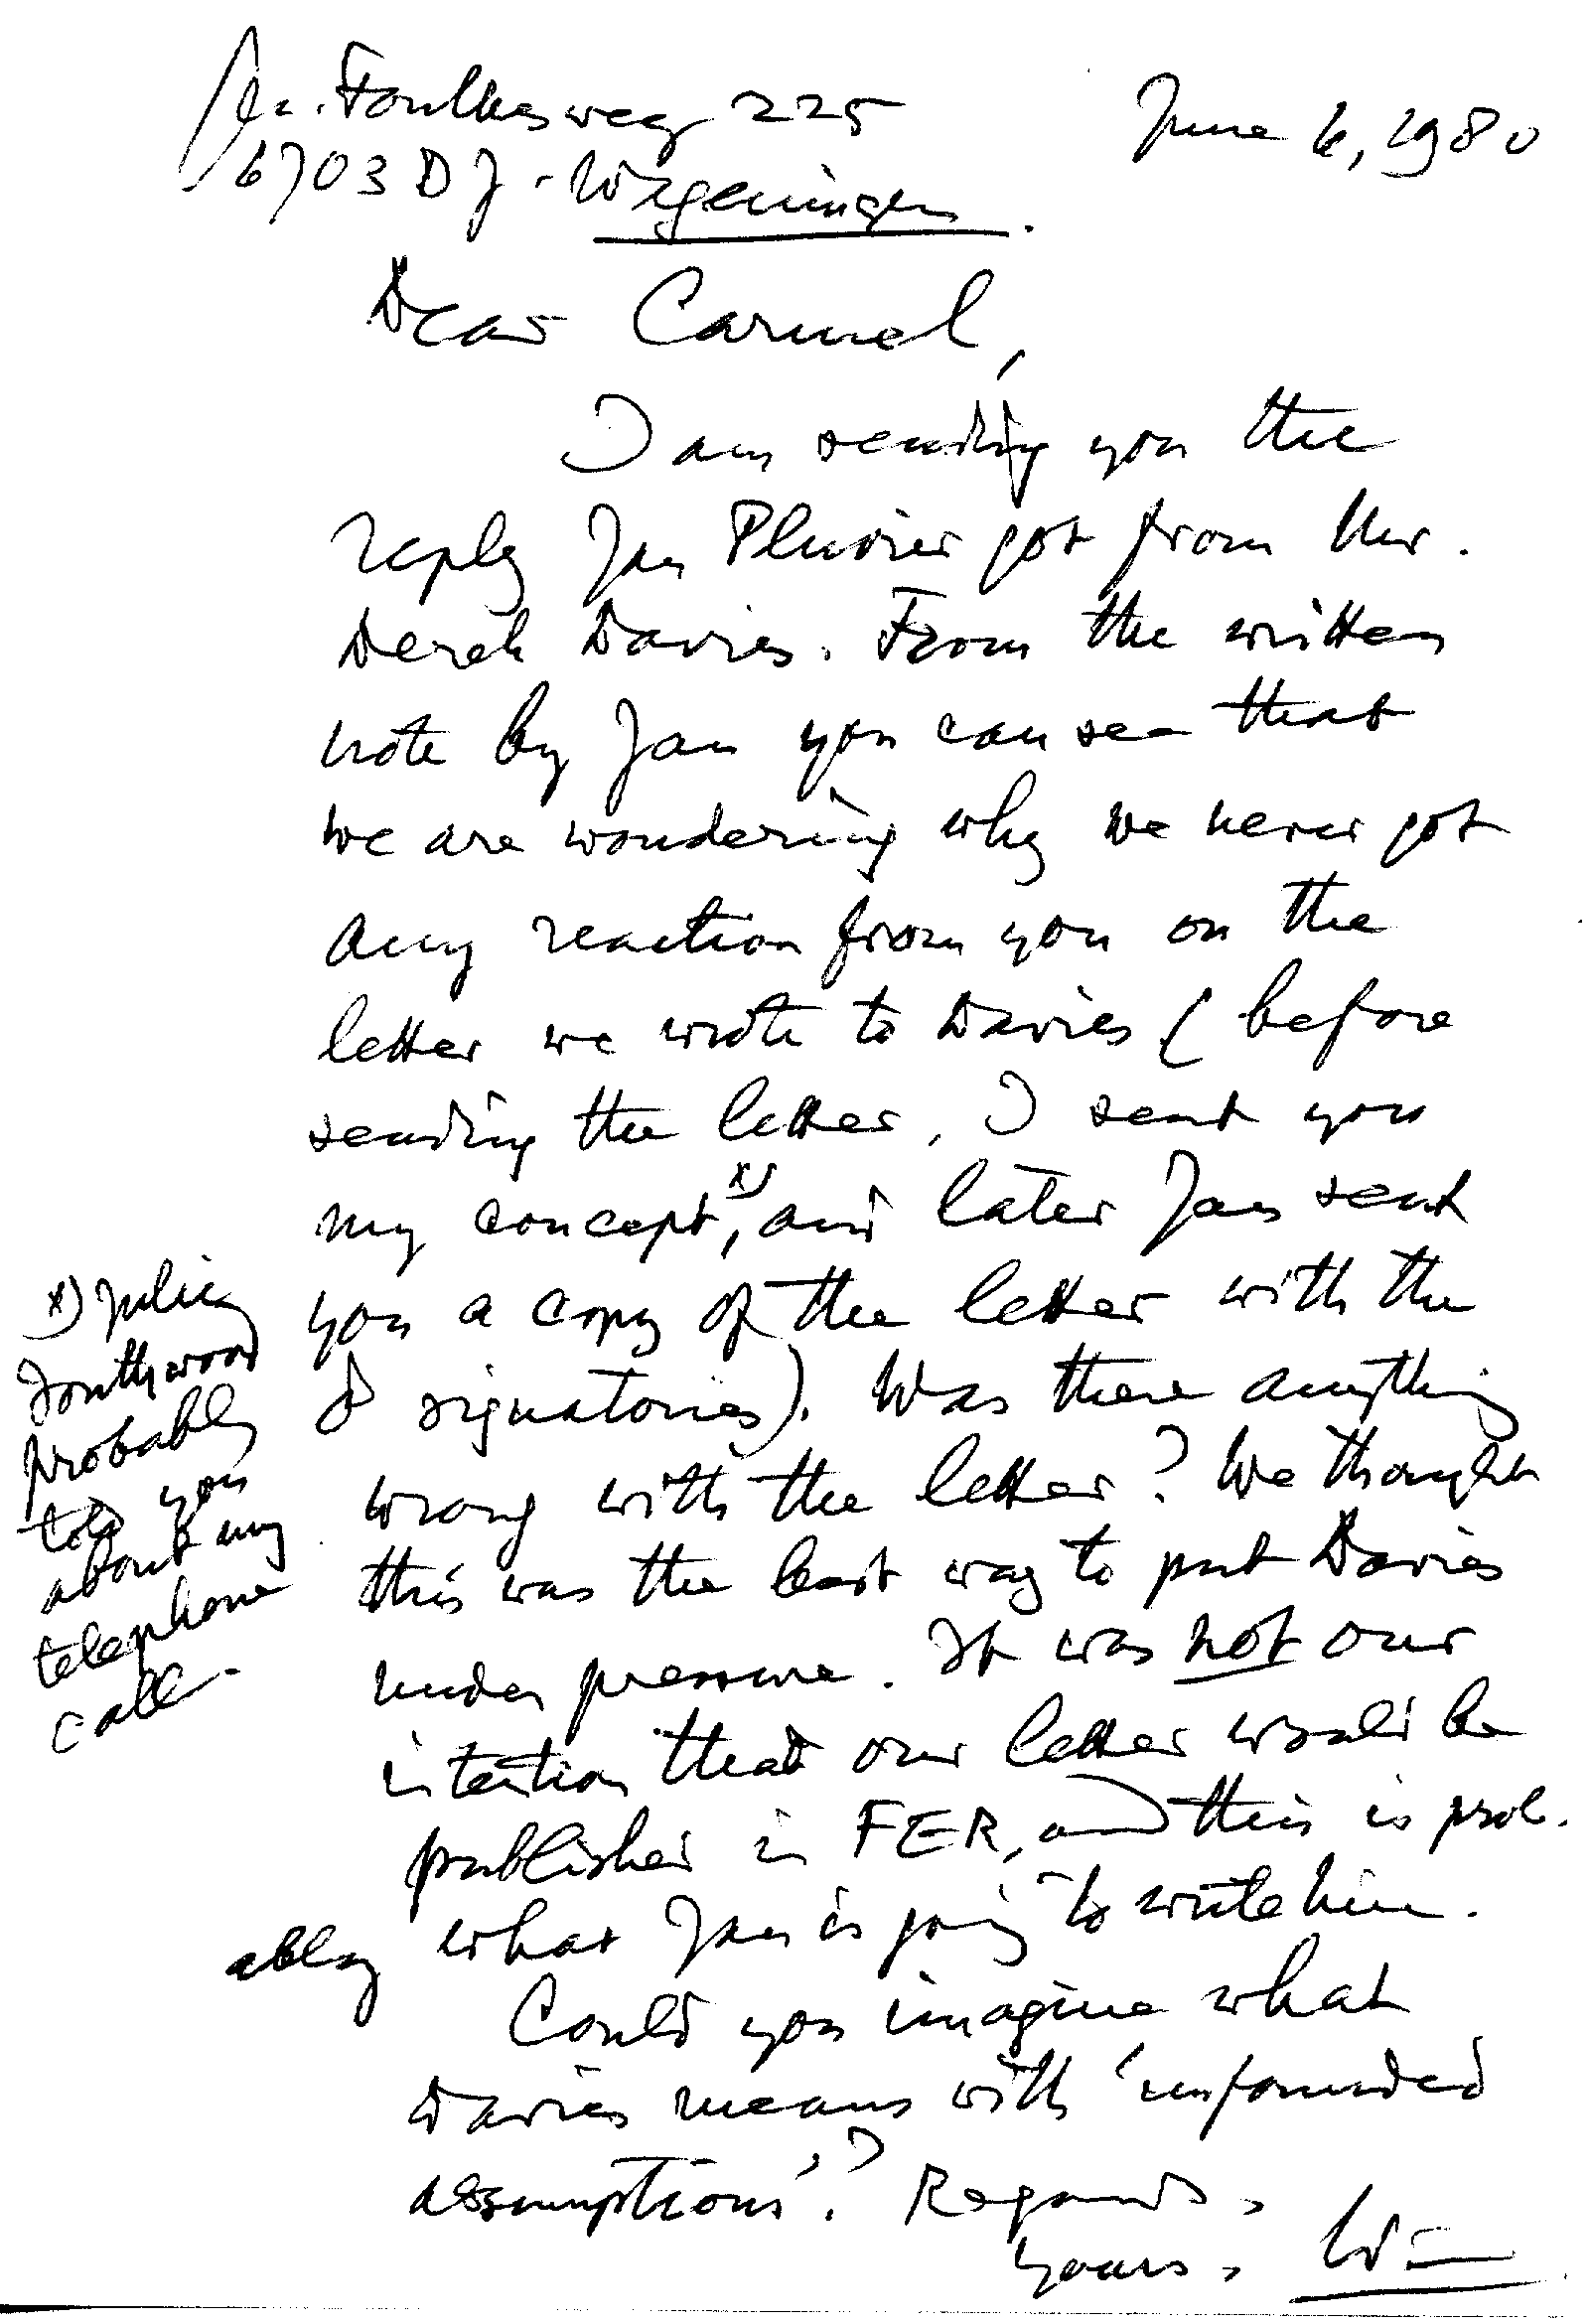 Foulkesweg 225
June 6, 1980
6703 DJ - Wageningen.
Dear Carmel,
I am sending you the
reply Jan Pluvier got from Mr.
Derek Davies. From the written
note by Jan you can see that
we are wondering why we never got
any reaction from you on the
letter we wrote to Davies (before
sending the letter, I sent you
my concept, x) and later Jan sent
you a copy of the letter with the
8 signatories). Was there anything
wrong with the letter? We thought
this was the best way to put Davies
under pressure. It was not our
intention that our letter would be
published in FER, and this is prob.
ably what Jan is going to write him.
Could you imagine what
Davies means with 'unfounded
assumptions'? Regards,
Yours, Wim
x) Julie
Southwood
probably
told you
about my
telephone
call.